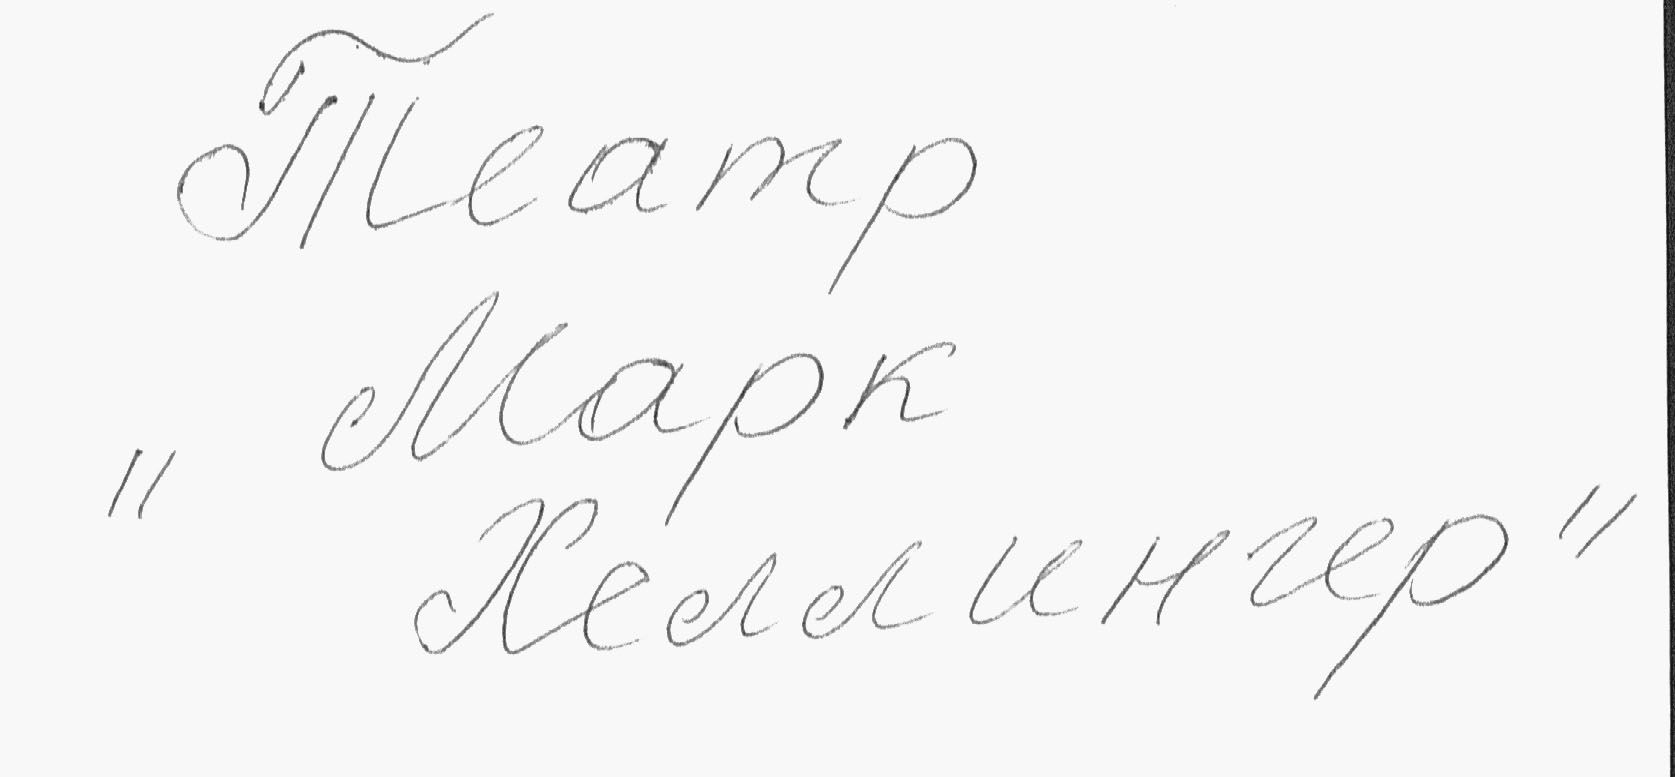 Театр
Марк
" Хеллингер"